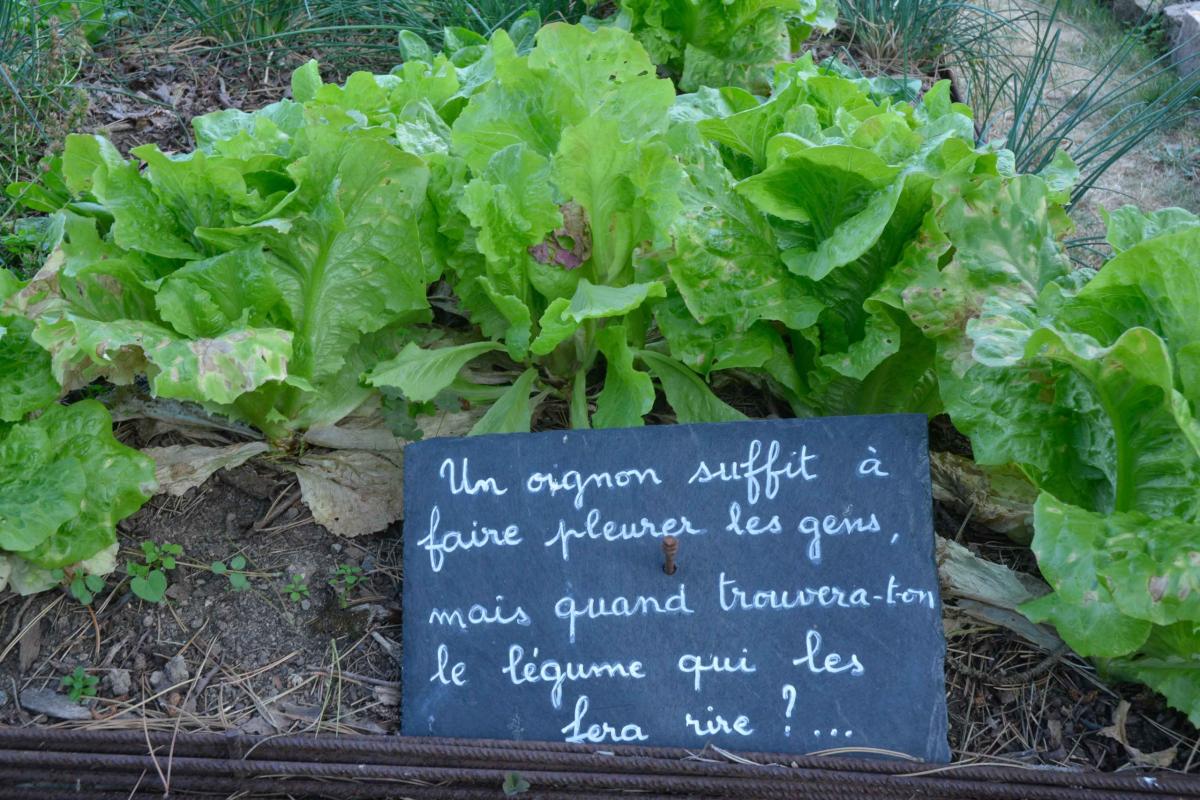 Un oignon suffit à
faire pleurer les gens,
mais quand trouvera-ton
le légume qui les
fera rire ?...